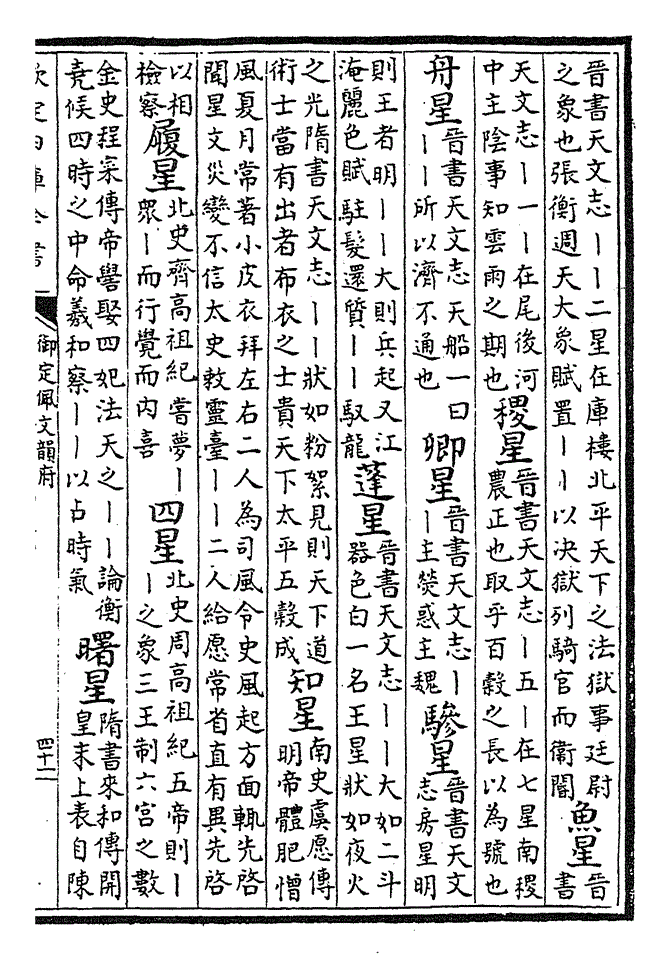 晉書天文志丨丨二星在庫樓北平天下之法獄事廷尉之象也張衡週天大象賦置丨丨以決獄列騎官而衛閽 魚星 晉書
天文志丨一丨在尾後河中主陰事知雲雨之期也 稷星 晉書天文志丨五丨在七星南稷農正也取乎百穀之長以為號也
舟星 晉書天文志天船一曰丨丨所以濟不通也 卿星 晉書天文志丨丨主熒惑主魏 驂星 晉書天文志房星明
則王者明丨丨大則兵起又江淹麗色賦駐髮還質丨丨馭龍 蓬星 晉書天文志丨丨大如二斗器色白一名王星狀如夜火
之光隋書天文志丨丨狀如粉絮見則天下道術士當有出者布衣之士貴天下太平五穀成 知星 南史虞愿傳明帝體肥憎
風夏月常著小皮衣拜左右二人為司風令史風起方面輒先啓聞星文災變不信太史敕靈臺丨丨二人給愿常省直有異先啓
以相檢察 履星 北史齊高祖紀嘗夢丨眾丨而行覺而内喜 四星 北史周高祖紀五帝則丨丨之象三王制六宫之數
金史程寀傳帝嚳娶四妃法天之丨丨論衡堯候四時之中命羲和察丨丨以占時氣 曙星 隋書來和傳開皇末上表自陳
欽定四庫全書
御定佩文韻府
四十二